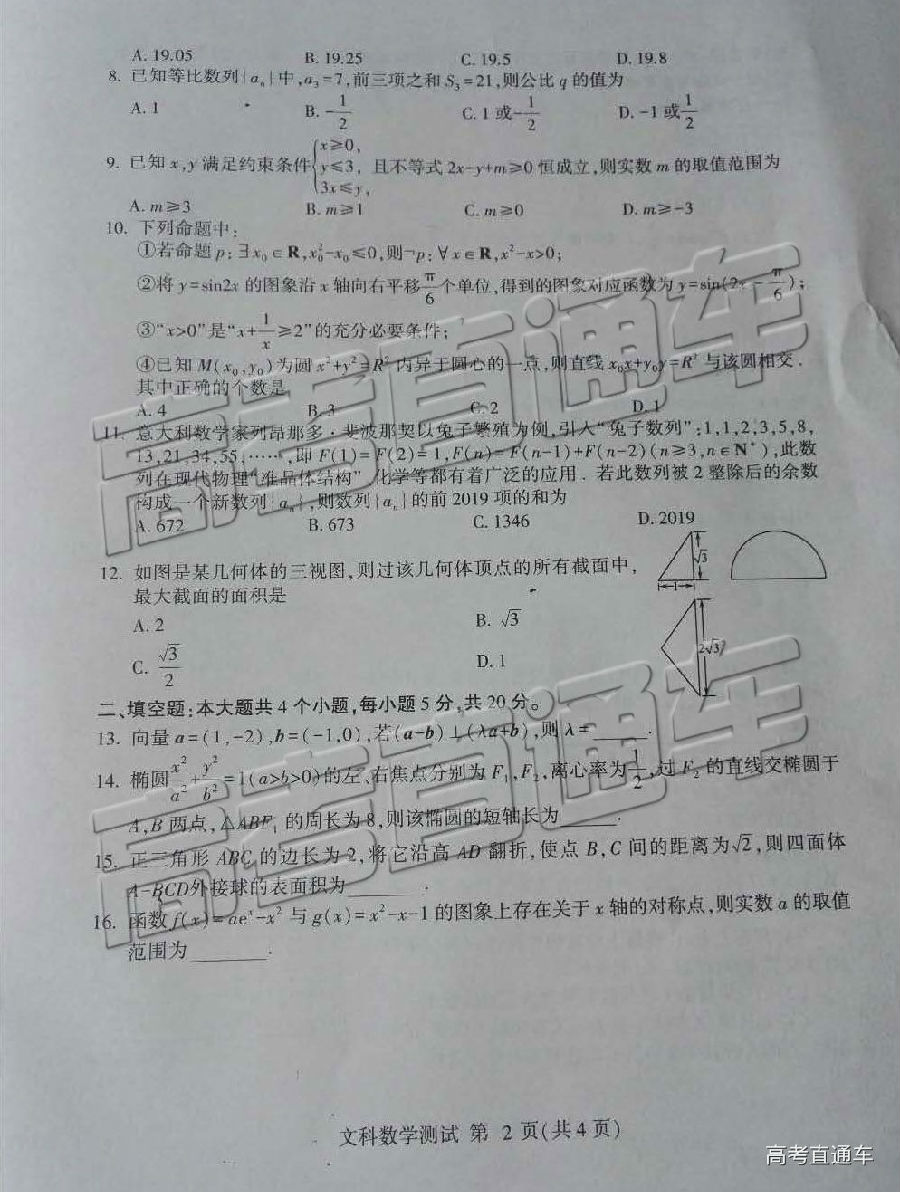 A. 19.05 B. 19.25 C. 19.5 D. 19.8
8. 已知等比数列{aₙ}中,a₃=7,前三项之和S₃=21,则公比 q 的值为
A. 1 B. -1/2 C. 1 或-1/2 D. -1 或1/2
9. 已知 x,y 满足约束条件{x≥0, y≤3, 3x≤y, 且不等式 2x-y+m≥0 恒成立,则实数 m 的取值范围为
A. m≥3 B. m≥1 C. m≥0 D. m≥-3
10. 下列命题中:
①若命题 p:∃x₀∈R,x₀²-x₀≤0,则¬p:∀x∈R,x²-x>0;
②将 y=sin2x 的图象沿 x 轴向右平移π/6个单位,得到的图象对应函数为 y=sin(2x-π/6);
③“x>0”是“x+1/x≥2”的充分必要条件;
④已知 M(x₀,y₀)为圆 x²+y²=R² 内异于圆心的一点,则直线 x₀x+y₀y=R² 与该圆相交.
其中正确的个数是
A. 4 B. 3 C. 2 D. 1
11. 意大利数学家列昂那多·斐波那契以兔子繁殖为例,引入“兔子数列”:1,1,2,3,5,8,
13,21,34,55,……,即 F(1)=F(2)=1,F(n)=F(n-1)+F(n-2)(n≥3,n∈N*),此数
列在现代物理“准晶体结构” 化学等都有着广泛的应用. 若此数列被 2 整除后的余数
构成一个新数列{aₙ},则数列{aₙ}的前 2019 项的和为
A. 672 B. 673 C. 1346 D. 2019
12. 如图是某几何体的三视图,则过该几何体顶点的所有截面中,
最大截面的面积是
A. 2 B. √3
C. √3/2 D. 1
√3
1
2√3
二、填空题:本大题共 4 个小题,每小题 5 分,共 20 分。
13. 向量 a=(1,-2),b=(-1,0),若(a-b)⊥(λa+b),则 λ=______.
14. 椭圆x²/a²+y²/b²=1(a>b>0)的左、右焦点分别为 F₁、F₂,离心率为1/2,过 F₂ 的直线交椭圆于
A,B 两点,△ABF₁ 的周长为 8,则该椭圆的短轴长为______.
15. 正三角形 ABC 的边长为 2,将它沿高 AD 翻折,使点 B,C 间的距离为√2,则四面体
A-BCD外接球的表面积为______.
16. 函数 f(x)=aeˣ-x² 与 g(x)=x²-x-1 的图象上存在关于 x 轴的对称点,则实数 a 的取值
范围为______.
文科数学测试 第 2 页(共 4 页)
高考直通车
高考直通车
高考直通车